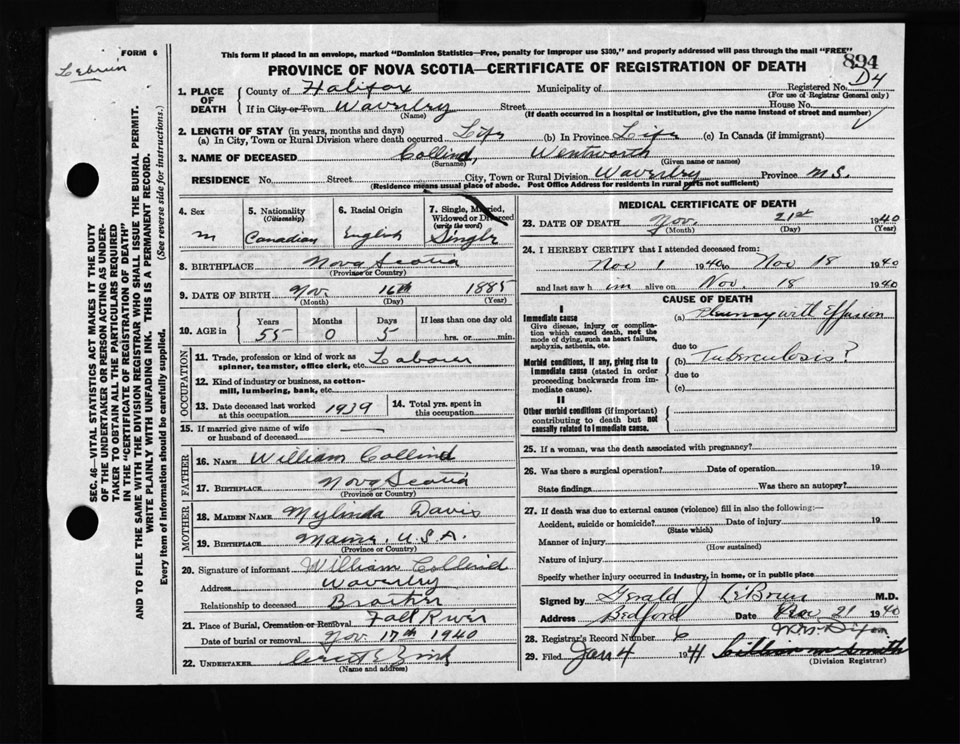 FORM 6
Lebruin
This form if placed in an envelope, marked "Dominion Statistics—Free, penalty for improper use $300," and properly addressed will pass through the mail "FREE"
894
PROVINCE OF NOVA SCOTIA—CERTIFICATE OF REGISTRATION OF DEATH
1. PLACE OF DEATH
County of Halifax Municipality of Registered No. D4
(For use of Registrar General only)
If in City or Town Waverley Street House No.
(Name) (If death occurred in a hospital or institution, give the name instead of street and number)
2. LENGTH OF STAY (in years, months and days)
(a) In City, Town or Rural Division where death occurred Life (b) In Province Life (c) In Canada (if immigrant)
3. NAME OF DECEASED Collind, Wentworth
(Surname) (Given name or names)
RESIDENCE No. Street City, Town or Rural Division Waverley Province N.S.
(Residence means usual place of abode. Post Office Address for residents in rural parts not sufficient)
4. Sex
M
5. Nationality (Citizenship)
Canadian
6. Racial Origin
English
7. Single, Married, Widowed or Divorced (write the word)
Single
8. BIRTHPLACE Nova Scotia
(Province or Country)
9. DATE OF BIRTH Nov. 16th 1885
(Month) (Day) (Year)
10. AGE in
Years Months Days If less than one day old
55 0 5 hrs. or min.
OCCUPATION
11. Trade, profession or kind of work as spinner, teamster, office clerk, etc. Labourer
12. Kind of industry or business, as cotton-mill, lumbering, bank, etc.
13. Date deceased last worked at this occupation 1939
14. Total yrs. spent in this occupation
15. If married give name of wife or husband of deceased —
FATHER
16. NAME William Collind
17. BIRTHPLACE Nova Scotia
(Province or Country)
MOTHER
18. MAIDEN NAME Mylinda Davis
19. BIRTHPLACE Maine, U.S.A.
(Province or Country)
20. Signature of informant William Collind
Address Waverley
Relationship to deceased Brother
21. Place of Burial, Cremation or Removal Fall River
Date of burial or removal Nov. 17th 1940
22. UNDERTAKER
(Name and address)
MEDICAL CERTIFICATE OF DEATH
23. DATE OF DEATH Nov. 21st 1940
(Month) (Day) (Year)
24. I HEREBY CERTIFY that I attended deceased from:
Nov 1 1940 to Nov 18 1940
and last saw him alive on Nov. 18 1940
CAUSE OF DEATH
I
Immediate cause
Give disease, injury or complication which caused death, not the mode of dying, such as heart failure, asphyxia, asthenia, etc.
(a) Pleurisy with Effusion
due to
Morbid conditions, if any, giving rise to immediate cause (stated in order proceeding backwards from immediate cause).
(b) Tuberculosis?
due to
(c)
II
Other morbid conditions (if important) contributing to death but not causally related to immediate cause.
25. If a woman, was the death associated with pregnancy?
26. Was there a surgical operation? Date of operation 19
State findings Was there an autopsy?
27. If death was due to external causes (violence) fill in also the following:—
Accident, suicide or homicide? Date of injury 19
(State which)
Manner of injury
(How sustained)
Nature of injury
Specify whether injury occurred in industry, in home, or in public place
Signed by Gerald J LeBrun M.D.
Address Bedford Date Nov 21 1940
28. Registrar's Record Number 6
Mrs. Dixon
29. Filed Jan 4 1941
(Division Registrar)
SEC. 46—VITAL STATISTICS ACT MAKES IT THE DUTY
OF THE UNDERTAKER OR PERSON ACTING AS UNDER-
TAKER TO OBTAIN ALL THE PARTICULARS REQUIRED
IN THE "CERTIFICATE OF REGISTRATION OF DEATH"
AND TO FILE THE SAME WITH THE DIVISION REGISTRAR WHO SHALL ISSUE THE BURIAL PERMIT.
WRITE PLAINLY WITH UNFADING INK. THIS IS A PERMANENT RECORD.
Every item of information should be carefully supplied. (See reverse side for instructions.)